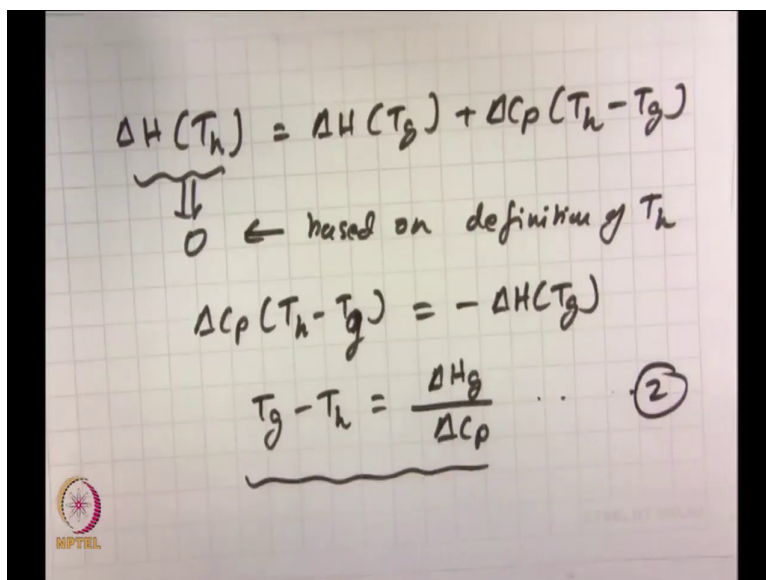 ΔH(Th) = ΔH(Tg) + ΔCp(Th - Tg)
0 ← based on definition of Th
ΔCp(Th - Tg) = - ΔH(Tg)
Tg - Th = ΔHg / ΔCp .. . ②
NPTEL